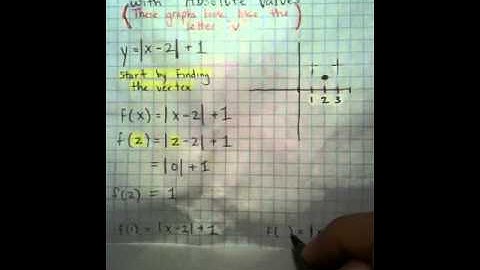 with Absolute Value
(These graphs look like the
letter "v")
y = |x-2| + 1
Start by finding
the vertex
f(x) = |x-2| + 1
f(2) = |2-2| + 1
= |0| + 1
f(2) = 1
f(1) = |x-2| + 1
f( ) = |x
1 2 3